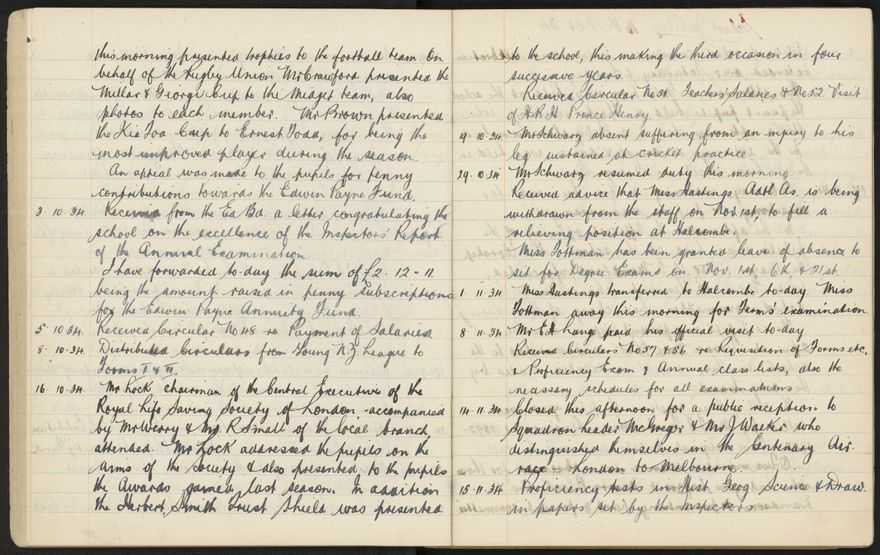 this morning presented trophies to the football team. On
behalf of the Rugby Union Mr Crawford presented the
Millar & Giorgi Cup to the Midget team, also
photos to each member. Mr Brown presented
the Kia Toa Cup to Ernest Todd, for being the
most improved player during the season.
An apeal was made to the pupils for penny
contributions towards the Edwin Payne Fund.
3. 10. 34. Received from the Ed Bd. a letter congratulating the
school on the excellence of the Inspectors' Report
of the Annual Examination
I have forwarded to-day the sum of £2-12-11
being the amount raised in penny subscriptions
for the Edwin Payne Annuity Fund.
5. 10. 34. Received Circular No 48 re Payment of Salaries
8. 10. 34. Distributed Circulars from Young N.Z. League to
Forms I & II.
16. 10. 34. Mr Lock chairman of the Central Executive of the
Royal Life Saving Society of London, accompanied
by Mr Werry & Mr. R Small of the local branch
attended. Mr Lock addressed the pupils on the
aims of the society & also presented to the pupils
the Awards gained last season. In addition
the Herbert Smith Trust Shield was presented
to the school, this making the third occasion in four
successive years.
Received Circular No 51 Teachers' Salaries & No 52 Visit
of H.R.H. Prince Henry
19. 10. 34. Mr Schwarz absent suffering from an injury to his
leg sustained at cricket practice.
29. 10. 34 Mr Schwarz resumed duty this morning.
Received advice that Miss Hastings Adtl. As. is being
withdrawn from the staff on Nov. 1st, to fill a
relieving position at Halcombe.
Miss Tottman has been granted leave of absence to
sit for Degree Exams on Nov. 1st 6th & 21st.
1. 11. 34 Miss Hastings transferred to Halcombe to-day Miss
Tottman away this morning for Terms' examination.
8 11. 34. Mr E.H Range paid his official visit to-day
Received Circulars No 57 & 56 re Requisition of Forms etc.
& Proficiency Exam & Annual class lists, also the
necessary schedules for all examinations
14. 11. 34 Closed this afternoon for a public reception to
Squadron Leader McGregor & Mr J Walker who
distinguished themselves in the Centenary Air
race London to Melbourne.
15. 11. 34 Proficiency tests in Hist. Geog Science & Draw.
in papers set by the Inspectors